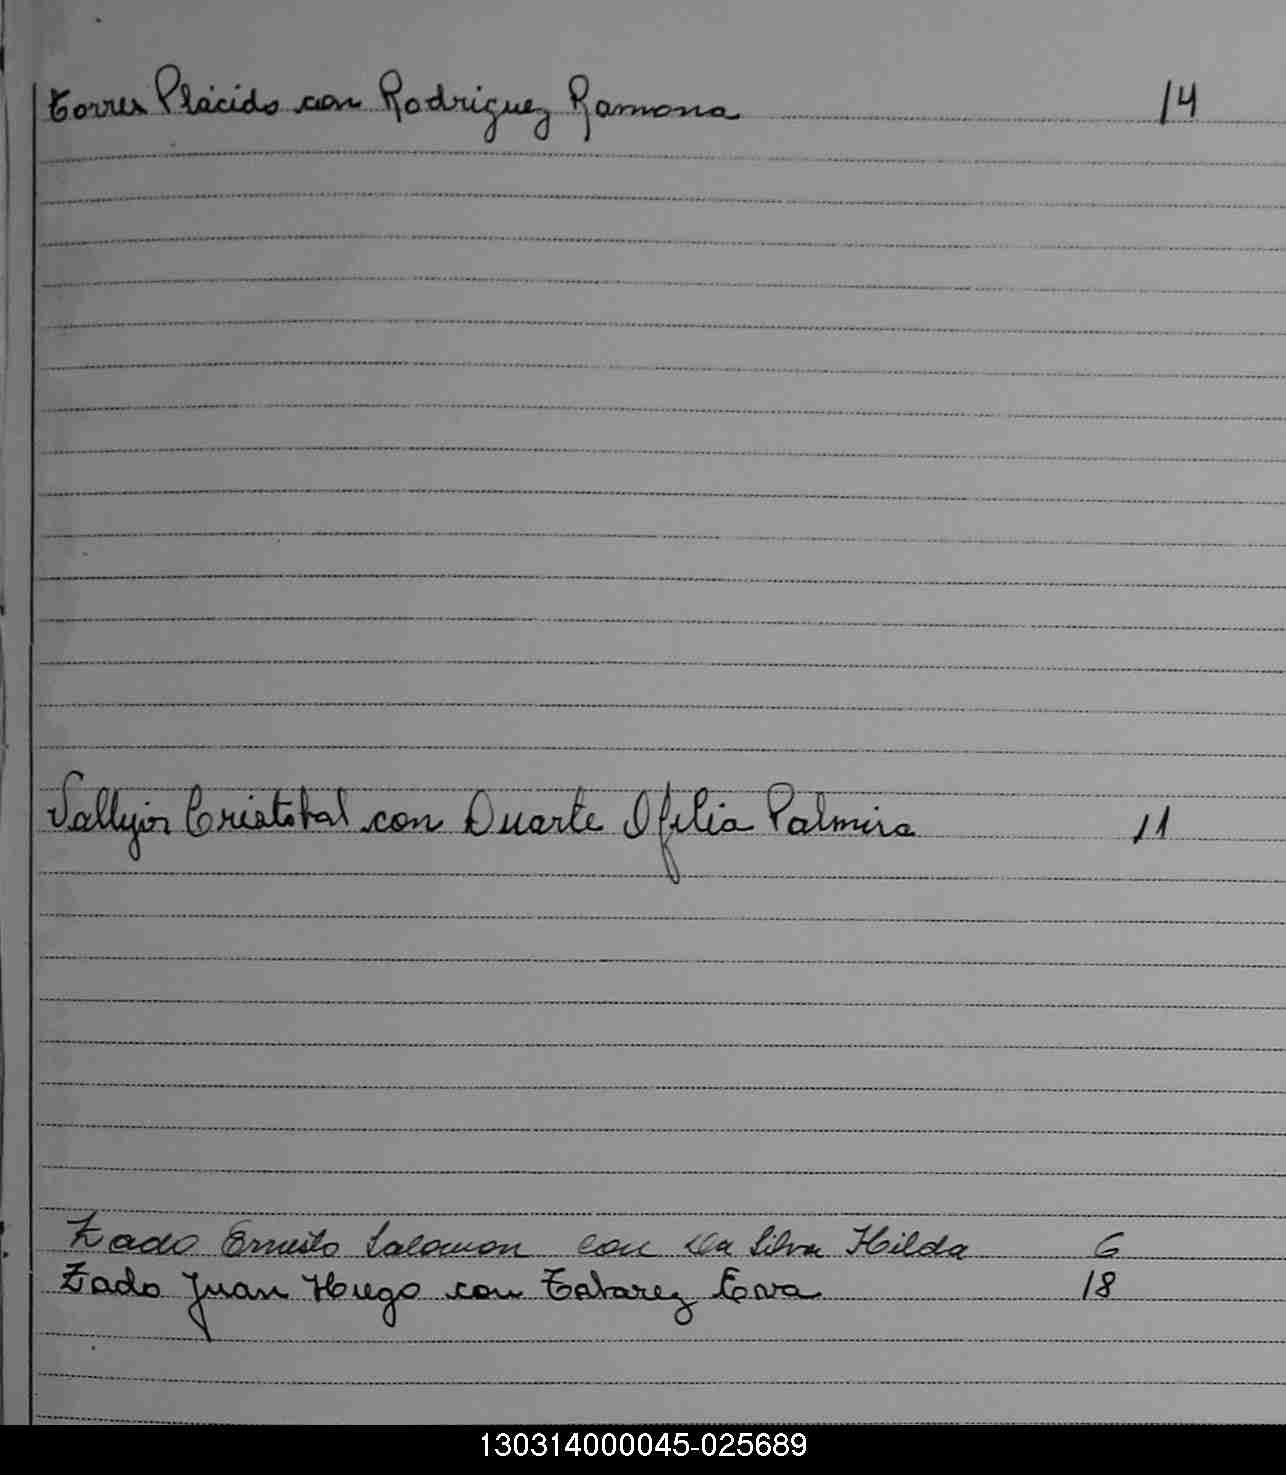 Torres Plácido con Rodriguez Ramona 14
Vallejos Cristobal con Duarte Ofelia Palmira 11
Zado Ernesto Salomon con Da Silva Hilda 6
Zado Juan Hugo con Tabarez Eva 18
130314000045-025689